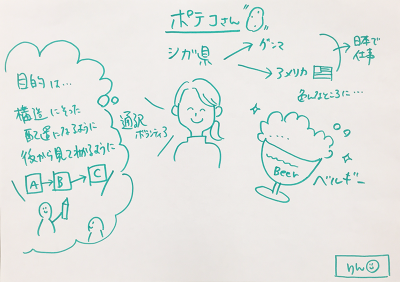 ポテコさん
シガ県
グンマ
アメリカ
日本で
仕事
色んなところに…
目的は…
構造にそった
配置になるように
後から見てわかるように
A → B → C
通訳
ボランティア
Beer
ベルギー
りん